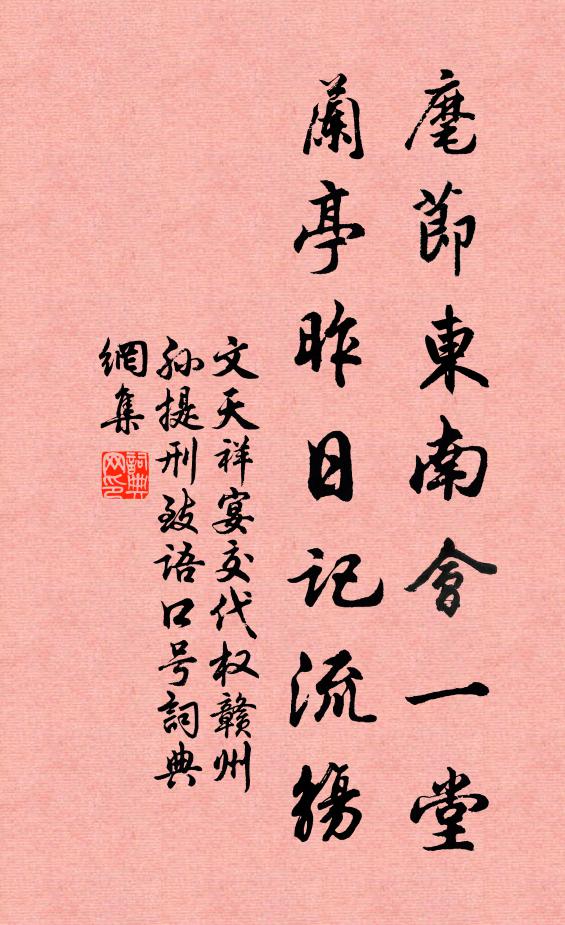 麾節東南會一堂
蘭亭昨日記流觴
文天祥宴交代权贛州
孙提刑致语口号詞典
網集
詞典网印